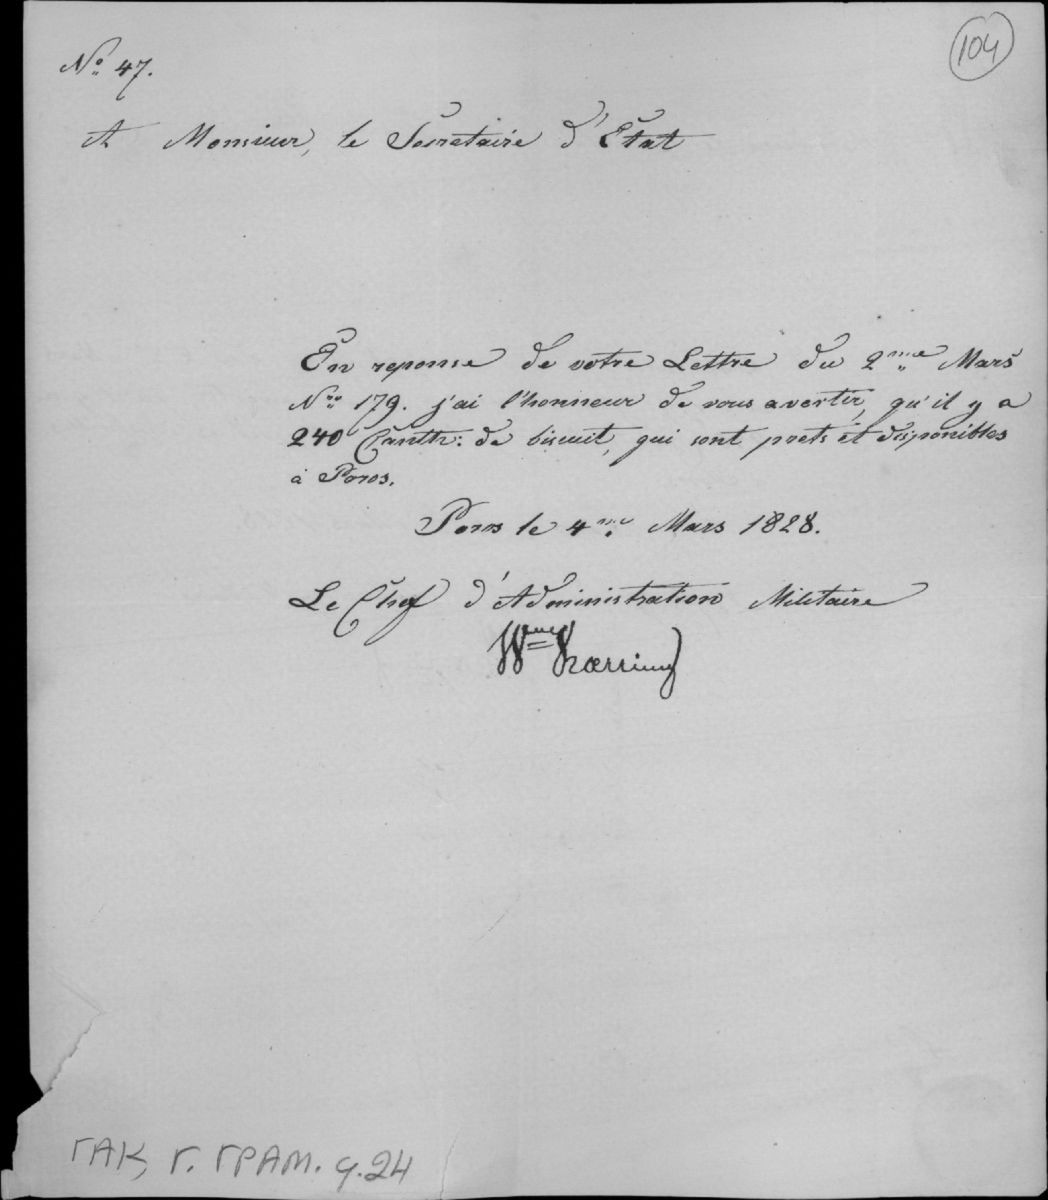 104
No 47.
A Monsieur, le Secretaire d'Etat
En reponse de votre Lettre du 2me Mars
Nro 179. j'ai l'honneur de vous avertir, qu'il y a
240 Canth: de biscuit, qui sont prets et disponibles
à Poros.
Poros le 4me Mars 1828.
Le Chef d'Administration Militaire
ΓΑΚ, Γ. ΓΡΑΜ. φ. 24